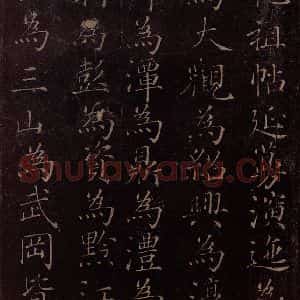 祖帖延蔓演迤為
為大觀為紹興為
為潭為鼎為澧為
為彭為為黔江
為三山為武岡皆
Shufawang.CN